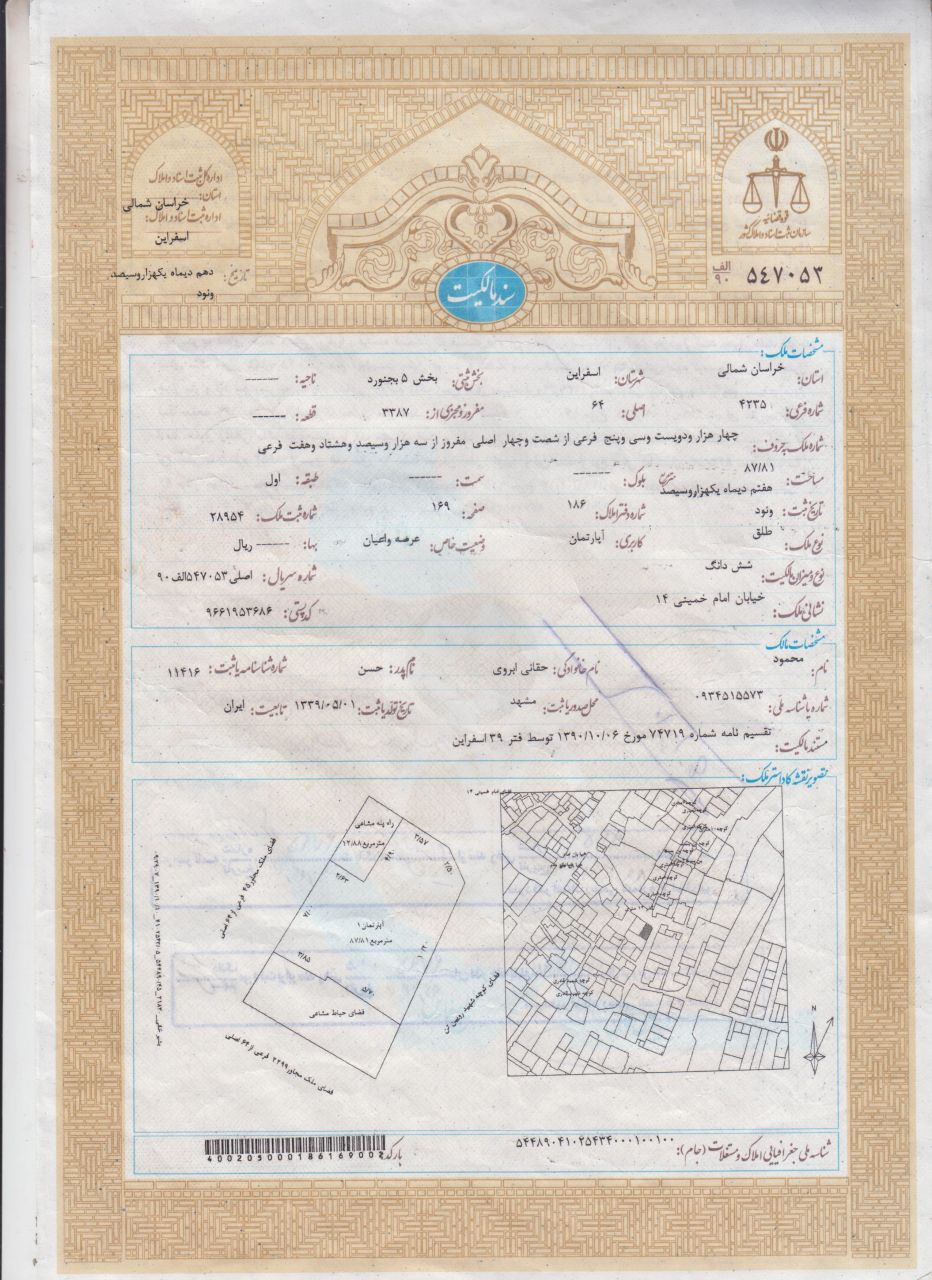 قوه قضائیه
سازمان ثبت اسناد و املاک کشور
۵۴۷۰۵۳ الف ۹۰
اداره کل ثبت اسناد و املاک
استان: خراسان شمالی
اداره ثبت اسناد و املاک:
اسفراین
تاریخ: دهم دیماه یکهزاروسیصد
ونود
سند مالکیت
مشخصات ملک:
استان: خراسان شمالی شهرستان: اسفراین بخش ثبتی: بخش ۵ بجنورد ناحیه: ------
شماره فرعی: ۴۲۳۵ اصلی: ۶۴ مفروز و مجزی از: ۳۳۸۷ قطعه: ------
شماره ملک بحروف: چهار هزار ودویست وسی وپنج فرعی از شصت وچهار اصلی مفروز از سه هزار وسیصد وهشتاد وهفت فرعی
مساحت: ۸۷/۸۱ متر بلوک: ------ سمت: ------ طبقه: اول
تاریخ ثبت: هفتم دیماه یکهزاروسیصد ونود شماره دفتر املاک: ۱۸۶ صفحه: ۱۶۹ شماره ثبت ملک: ۲۸۹۵۴
نوع ملک: طلق کاربری: آپارتمان وضعیت خاص: عرصه واعیان بها: ------ ریال
نوع و میزان مالکیت: شش دانگ شماره سریال: اصلی۵۴۷۰۵۳الف۹۰
نشانی ملک: خیابان امام خمینی ۱۴ کد پستی: ۹۶۶۱۹۵۳۶۸۶
مشخصات مالک:
نام: محمود نام خانوادگی: حقانی ابروی نام پدر: حسن شماره شناسنامه یا ثبت: ۱۱۴۱۶
شماره یا شناسه ملی: ۰۹۳۴۵۱۵۵۷۳ محل صدور یا ثبت: مشهد تاریخ تولد یا ثبت: ۱۳۳۹/۰۵/۰۱ تابعیت: ایران
مستند مالکیت: تقسیم نامه شماره ۷۴۷۱۹ مورخ ۱۳۹۰/۱۰/۰۶ توسط فتر ۳۹ اسفراین
تصویر نقشه کاداستر ملک:
فضای امام خمینی ۱۴
راه پله مشاعی
۱۲/۸۸مترمربع
۳/۵۷
۲/۵۰
۲/۶۳
آپارتمان۱
۸۷/۸۱ مترمربع
۳/۸۵
فضای حیاط مشاعی
فضای ملک مجاور۴۵ فرعی از۶۴ اصلی
فضای ملک مجاور۲۲۹۹ فرعی از۶۴ اصلی
N
شناسه ملی جغرافیایی املاک و مستغلات (جام): ۵۴۴۸۹۰۴۱۰۲۵۴۳۴۰۰۰۱۰۰۱۰۰
بارکد:
400205000186169002